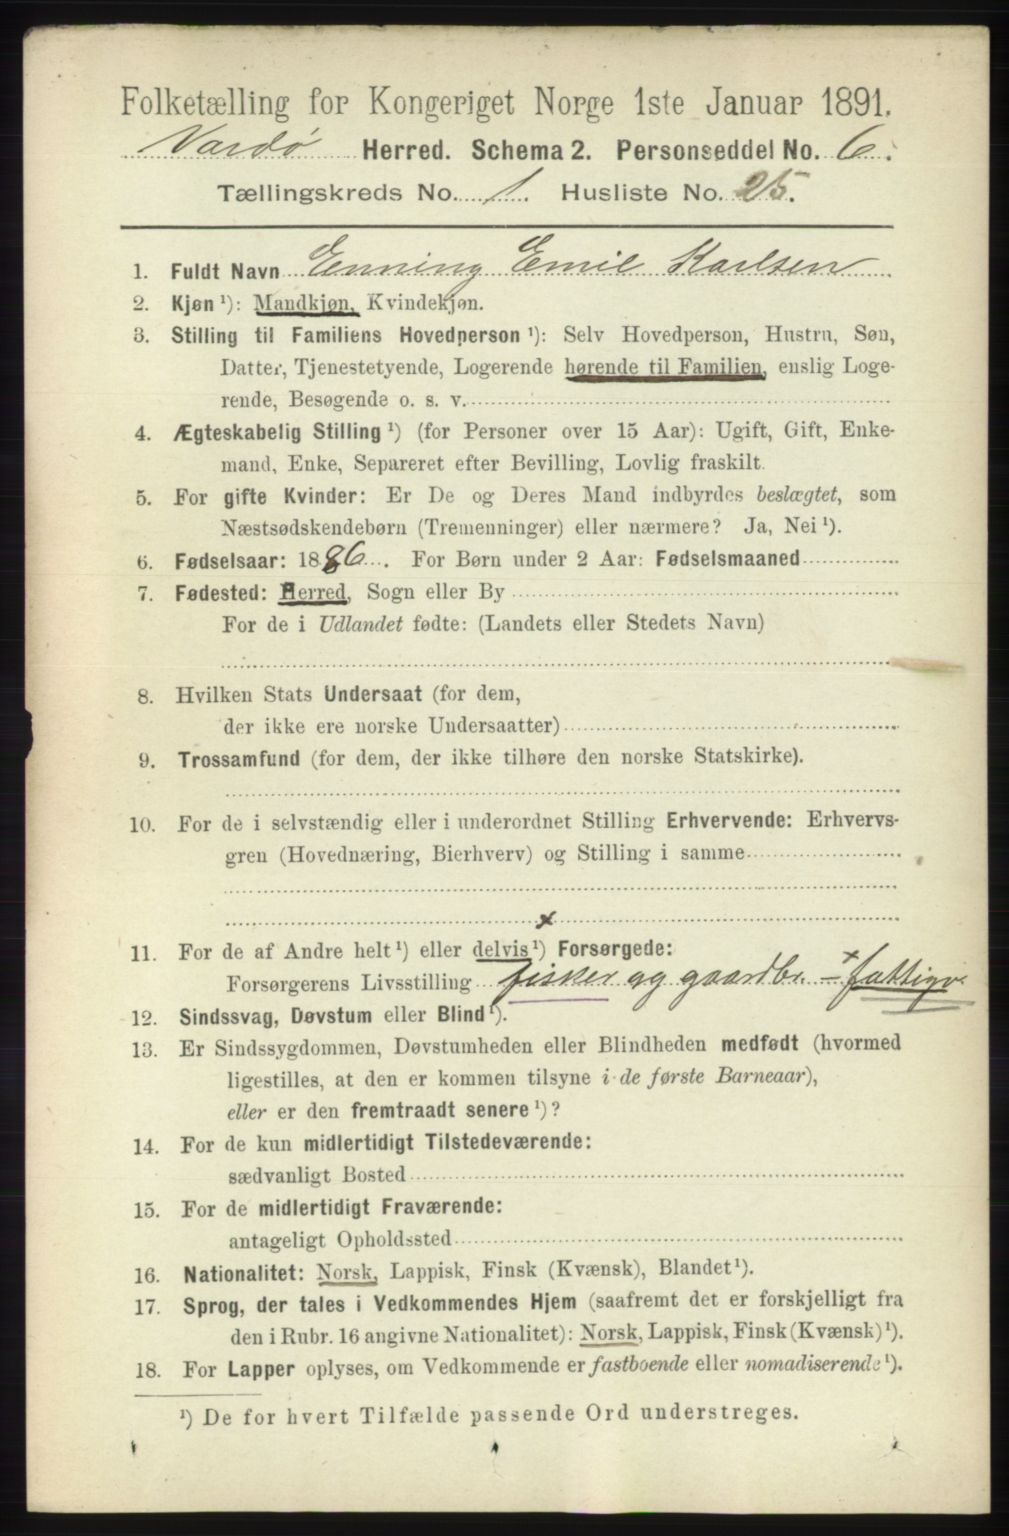 Folketælling for Kongeriget Norge 1ste Januar 1891.
Vardø Herred. Schema 2. Personseddel No. 6.
Tællingskreds No. 1. Husliste No. 25.
1. Fuldt Navn Enning Emil Karlsen
2. Kjøn ¹): Mandkjøn, Kvindekjøn.
3. Stilling til Familiens Hovedperson ¹): Selv Hovedperson, Hustru, Søn,
Datter, Tjenestetyende, Logerende hørende til Familien, enslig Loge-
rende, Besøgende o. s. v.
4. Ægteskabelig Stilling ¹) (for Personer over 15 Aar): Ugift, Gift, Enke-
mand, Enke, Separeret efter Bevilling, Lovlig fraskilt.
5. For gifte Kvinder: Er De og Deres Mand indbyrdes beslægtet, som
Næstsødskendebørn (Tremenninger) eller nærmere? Ja, Nei ¹).
6. Fødselsaar: 1886. For Børn under 2 Aar: Fødselsmaaned
7. Fødested: Herred, Sogn eller By
For de i Udlandet fødte: (Landets eller Stedets Navn)
8. Hvilken Stats Undersaat (for dem,
der ikke ere norske Undersaatter)
9. Trossamfund (for dem, der ikke tilhøre den norske Statskirke).
10. For de i selvstændig eller i underordnet Stilling Erhvervende: Erhvervs-
gren (Hovednæring, Bierhverv) og Stilling i samme
x
11. For de af Andre helt ¹) eller delvis ¹) Forsørgede:
Forsørgerens Livsstilling fisker og gaardbr. x – fattigv.
12. Sindssvag, Døvstum eller Blind ¹).
13. Er Sindssygdommen, Døvstumheden eller Blindheden medfødt (hvormed
ligestilles, at den er kommen tilsyne i de første Barneaar),
eller er den fremtraadt senere ¹)?
14. For de kun midlertidigt Tilstedeværende:
sædvanligt Bosted
15. For de midlertidigt Fraværende:
antageligt Opholdssted
16. Nationalitet: Norsk, Lappisk, Finsk (Kvænsk), Blandet ¹).
17. Sprog, der tales i Vedkommendes Hjem (saafremt det er forskjelligt fra
den i Rubr. 16 angivne Nationalitet): Norsk, Lappisk, Finsk (Kvænsk) ¹).
18. For Lapper oplyses, om Vedkommende er fastboende eller nomadiserende ¹).
¹) De for hvert Tilfælde passende Ord understreges.